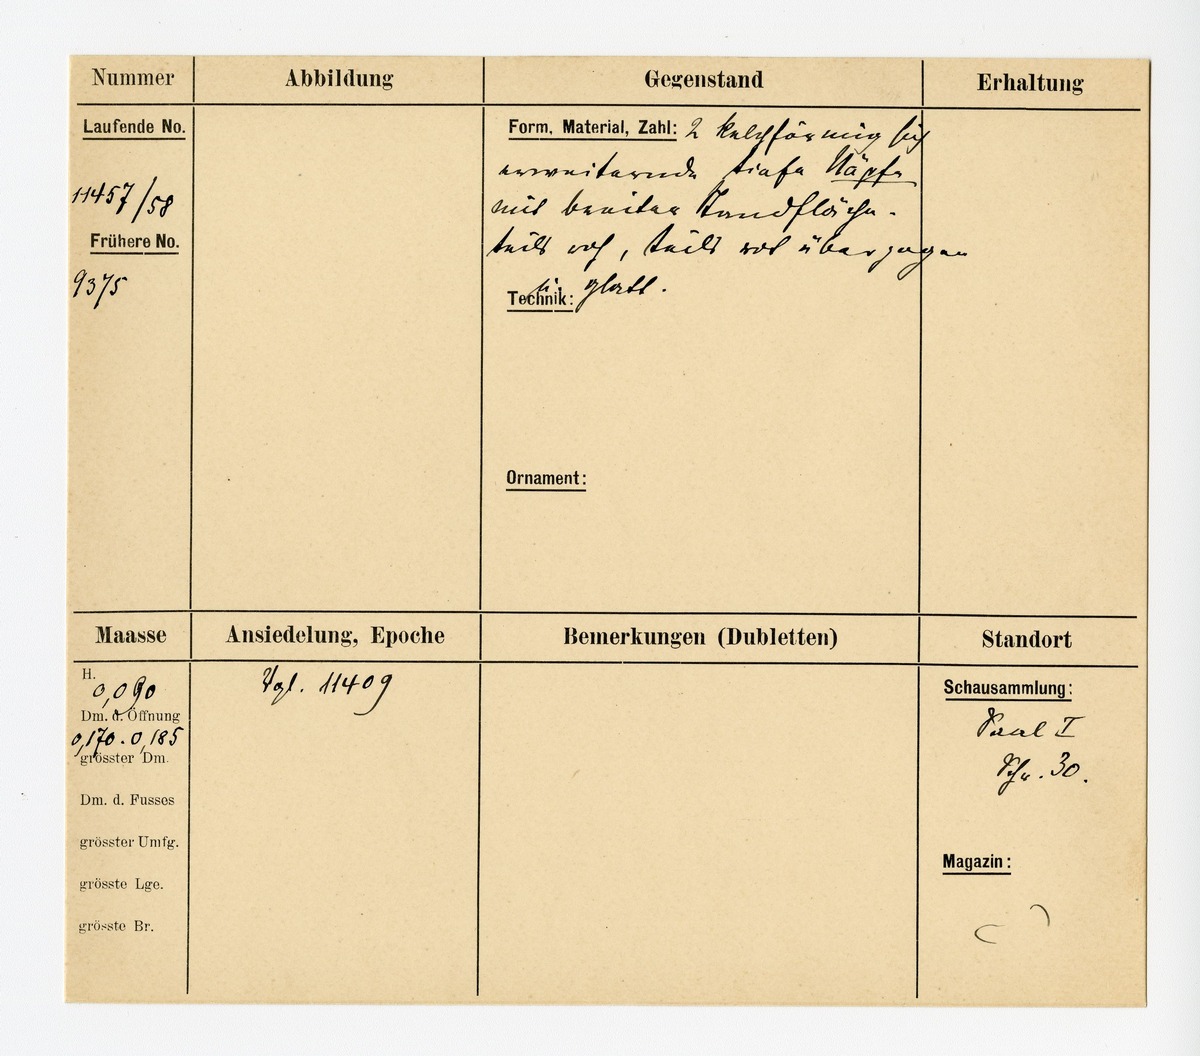 Nummer
Abbildung
Gegenstand
Erhaltung
Laufende No.
11457/58
Frühere No.
9375
Form, Material, Zahl: 2 kelchförmig sich
erweiternde tiefe Näpfe
mit breiter Standfläche.
teils roh, teils rot überzogen
u. glatt.
Technik:
Ornament:
Maasse
Ansiedelung, Epoche
Bemerkungen (Dubletten)
Standort
H.
0,090
Dm. d. Öffnung
0,170. 0,185
grösster Dm.
Dm. d. Fusses
grösster Umfg.
grösste Lge.
grösste Br.
Vgl. 11409
Schausammlung:
Saal I
Schr. 30.
Magazin: